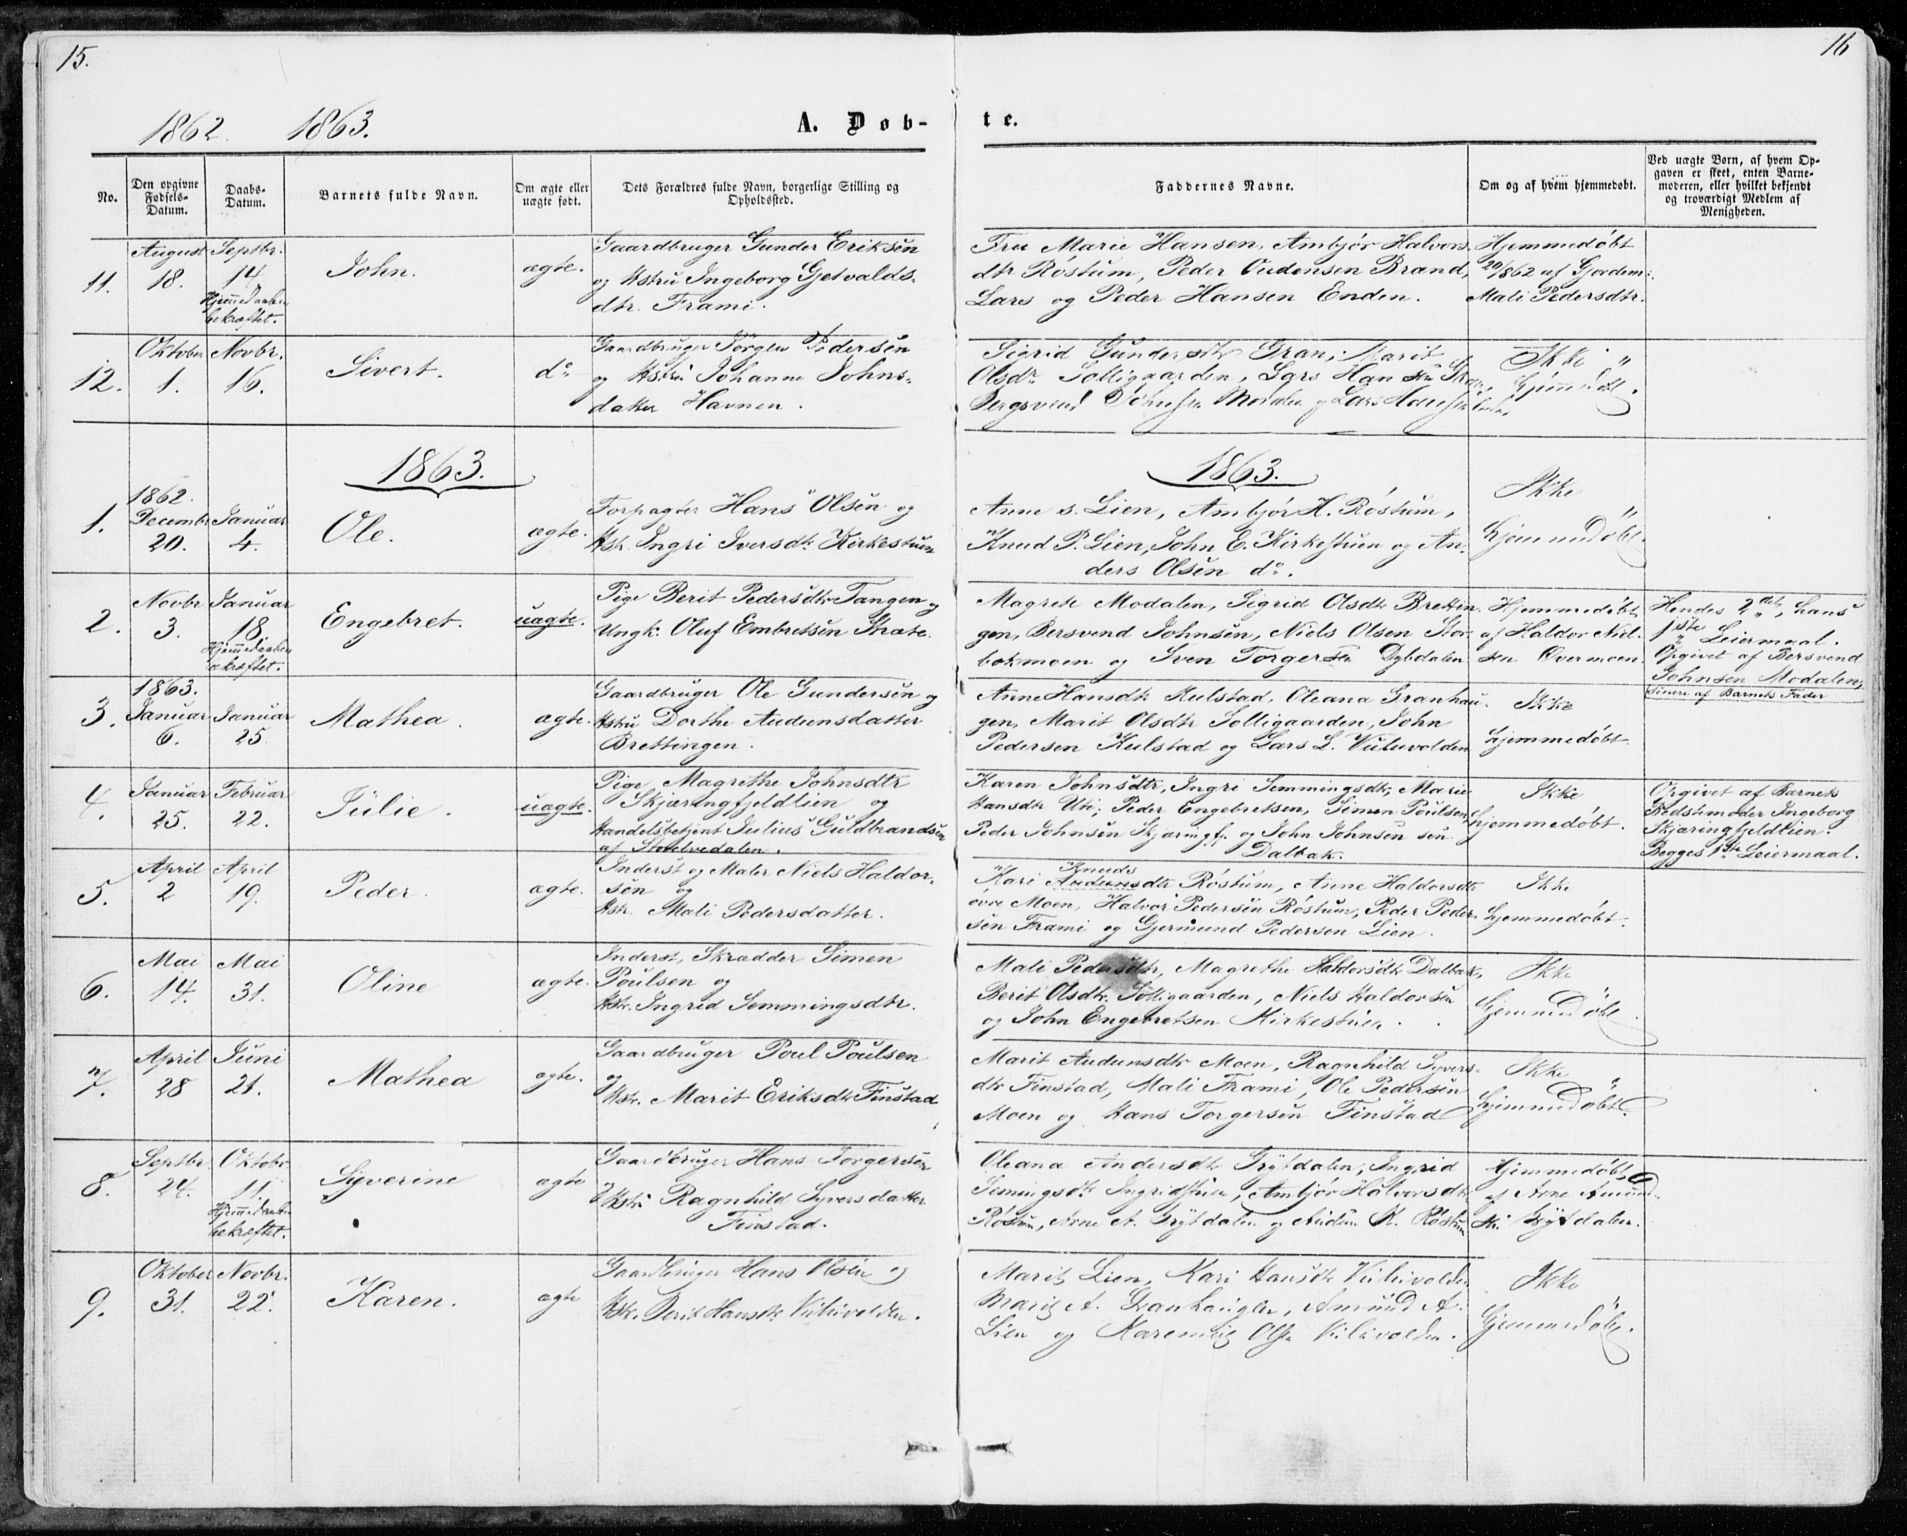 15.
16
1862. 1863.
A. Døb-
te.
No.
Den opgivne Fødsels-Datum.
Daabs-Datum.
Barnets fulde Navn.
Om ægte eller uægte født.
Dets Forældres fulde Navn, borgerlige Stilling og Opholdssted.
Faddernes Navne.
Om og af hvem hjemmedøbt.
Ved uægte Børn, af hvem Opgaven er skeet, enten Barnemoderen, eller hvilket bekjendt og troværdigt Medlem af Menigheden.
11.
August
18.
Septbr.
14
Hjemmedaaben
bekræftet.
John.
ægte.
Gaardbruger Gunder Eriksen
og Hstru Ingeborg Gjetvalds-
dtr. Frami.
Fru Marie Hansen, Ambjør Halvors
dtr Røstum, Peder Oudensen Brand,
Lars og Peder Hansen Enden.
Hjemmedøbt
20/862 af Gjordem:
Mali Pedersdtr.
12.
Oktober
1.
Novbr.
16.
Sivert.
do
Gaardbruger Jørgen Pedersen
og Hstru Johanne Johns-
datter Havnen.
Sigrid Gundersdtr Gran, Marit
Olsdtr Solligaarden, Lars
Bergsvend Johnsen
Ikke
hjemmedøbt.
1863.
1863.
1.
1862.
Decembr
20.
Januar
4.
Ole.
ægte.
Forpagter Hans Olsen og
Hstr. Ingri Iversdtr Kirkestuen
Anne s. Lien, Ambjør H. Røstum,
Knud P. Lien, John E. Kirkestuen og An-
ders Olsen do.
Ikke
hjemmedøbt.
2.
Novbr
3.
Januar
18.
Hjemmedaaben
bekræftet.
Engebret.
uægte.
Pige Berit Pedersdtr Tangen og
Ungk. Oluf Embretsen Stræte.
Magrete Modalen, Sigrid Olsdtr Brettin
gen, Bersvend Johnsen, Niels Olsen Stor-
bækmoen og Sven Torgersen Dybdalen
Hjemmedøbt
af Haldor Niel-
sen Overmoen.
Hendes 2det, hans
1ste Leiermaal.
Opgivet af Bersvend
Johnsen Modalen,
senere af Barnets Fader
3.
1863.
Januar
6.
Januar
25.
Mathea.
ægte.
Gaardbruger Ole Gundersen og
Hstru Dorthe Audunsdatter
Brettingen.
Anne Hansdtr Kulstad, Oleana Granhau-
gen, Marit Olsdtr Solligaarden, John
Pedersen Kulstad og Lars L. Vulüvolden
Ikke
hjemmedøbt.
4.
Januar
25.
Februar
22.
Julie.
uægte.
Pige Magrethe Johnsdtr
Skjæringfjeldlien og
Handelsbetjent Julius Guldbrandsen
af Storelvedalen.
Karen Johnsdtr, Ingri Semmingsdtr, Marie
Hansdtr Utie, Peder Engebretsen, Simen Poulsen,
Peder Johnsen Skjæringfj. og John Johnsen sen
Dalbak.
Ikke
hjemmedøbt.
Opgivet af Barnets
Bedstemoder Ingeborg
Skjæringfjeldlien.
Begges 1ste Leiermaal.
5.
April
2
April
19.
Peder.
ægte.
Inderst og Maler Niels Haldor-
sen og
Hstr. Mali Pedersdatter.
Knuds
Kari Audunsdtr Røstum, Anne Haldorsdtr
øvre Moen, Halvor Pedersen Røstum, Peder Peder-
sen Frami og Gjermund Pedersen Lien.
Ikke
hjemmedøbt.
6.
Mai
14.
Mai
31.
Oline
ægte.
Inderst, Skrædder Simen
Poulsen og
Hstr. Ingrid Semmingsdtr.
Mali Pedersdtr, Magrethe Haldorsdtr Dalbak,
Berit Olsdtr. Solligaarden, Niels Haldorsen
og John Engebretsen Kirkestuen.
Ikke
hjemmedøbt.
7.
April
28
Juni
21.
Mathea
ægte.
Gaardbruger Poul Poulsen
og
Hstr. Marit Eriksdtr Finstad
Marit Audunsdtr Moen, Ragnhild Syvers-
dtr Finstad, Mali Frami, Ole Pedersen
Moen og Hans Torgersen Finstad
Ikke
hjemmedøbt.
8.
Septbr.
24.
Oktobr
11.
Hjemmedaaben
bekræftet.
Syverine
ægte
Gaardbruger Hans Torgersen
Hstru Ragnhild Syversdatter
Finstad.
Oleana Andersdtr Grytdalen, Ingrid
Semingsdtr Ingridstuen, Ambjør Halvorsdtr
Røstum, Arne A. Grytdalen og Audun K. Røstum
Hjemmedøbt
af Arne Amund-
sen Grytdalen.
9.
Oktober
31.
Novbr.
22.
Karen.
ægte
Gaardbruger Hans Olsen og
Hstr. Berit Hansdtr Vulüvolden.
Marit Lien, Kari Hansdtr Vulüvolden
Marit A. Granhaugen, Amund A.
Lien og Olsen Vulüvolden.
Ikke
hjemmedøbt.